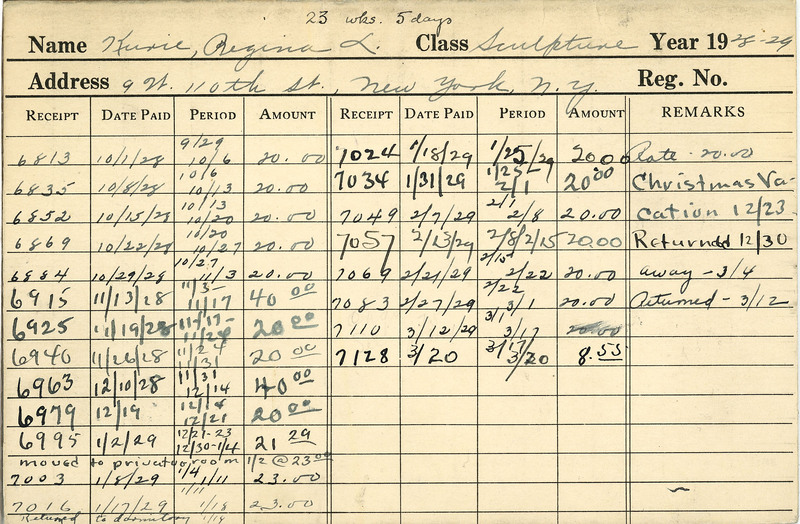 23 wks. 5 days
Name Kurie, Regina L. Class Sculpture Year 1928-29
Address 9 W. 110th St., New York, N.Y. Reg. No.
RECEIPT DATE PAID PERIOD AMOUNT RECEIPT DATE PAID PERIOD AMOUNT REMARKS
6813 10/1/28 9/29 10/6 20.00 7024 1/18/29 1/25/29 20.00 Rate - 20.00
6835 10/8/28 10/6 10/13 20.00 7034 1/31/29 1/25- 2/1 20.00 Christmas Va-
6852 10/15/28 10/13 10/20 20.00 7049 2/7/29 2/1 2/8 20.00 cation 12/23
6869 10/22/28 10/20 10/27 20.00 7057 2/13/29 2/8 2/15 20.00 Returned 12/30
6884 10/29/28 10/27 11/3 20.00 7069 2/21/29 2/15 2/22 20.00 away - 3/4
6915 11/13/28 11/3- 11/17 40.00 7083 2/27/29 2/22 3/1 20.00 Returned - 3/12
6925 11/19/28 11/17- 11/24 20.00 7110 3/12/29 3/1 3/17 20.00
6940 11/26/28 11/24 11/31 20.00 7128 3/20 3/17 3/20 8.55
6963 12/10/28 11/31 12/14 40.00
6979 12/19 12/14 12/21 20.00
6995 1/2/29 12/21-23 12/30-1/4 21.29
moved to private room 1/2 @ 23.00
7003 1/8/29 1/4 1/11 23.00
7016 1/17/29 1/11 1/18 23.00
Returned to dormitory 1/18